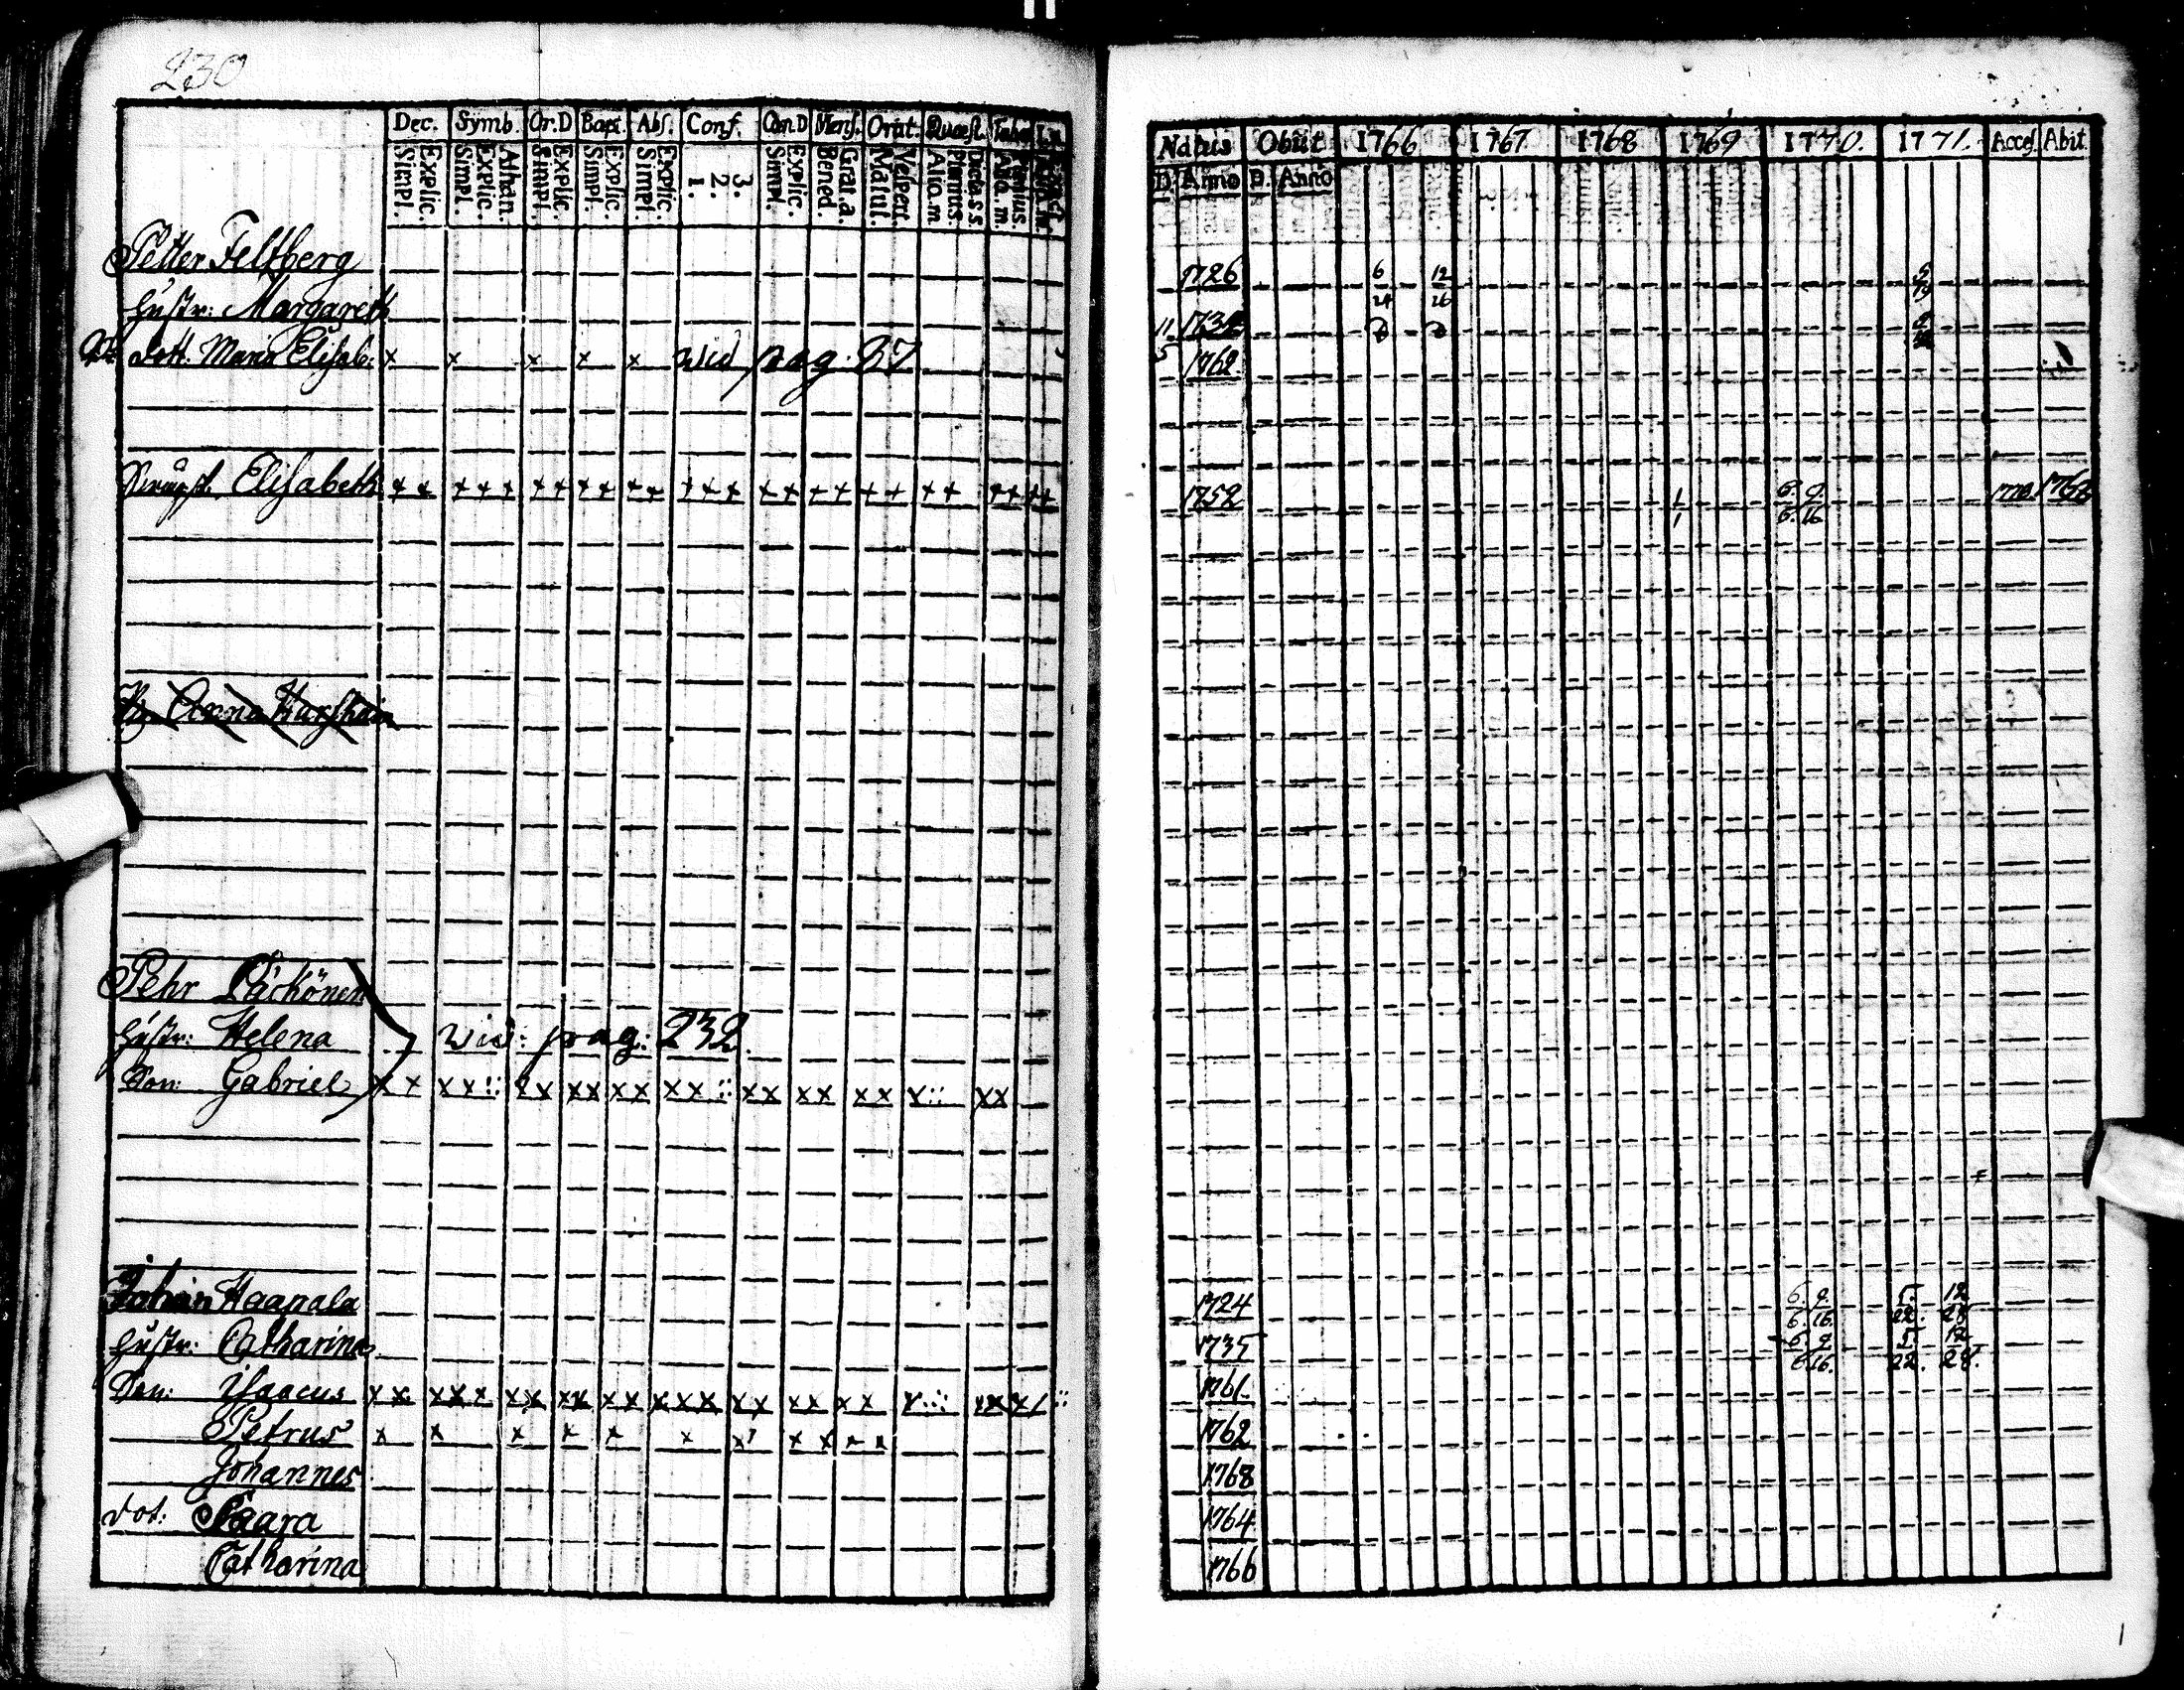 230
Dec. Symb. Or.D Bapt. Abs. Conf. Con.D Mens. Orat. Quæst.
Simpl. Explic. Simpl. Explic. Athan. Simpl. Explic. Simpl. Explic. Simpl. Explic. 1. 2. 3. Simpl. Explic. Bened. Grat.a. Matut. Vespert. Alio.m. Plenius. Dicta.s.s. Alio.m. Plenius.
Natus Obiit 1766 1767 1768 1769 1770. 1771. Acces. Abit
D. Anno D. Anno
Petter Feltberg 1726 6/24 12/26
hustr: Margareth 11
dott. Maria Elisab: x x x x x vid pag. 37 5 1762.
Elisabeth ++ +++ ++ ++ ++ +++ ++ ++ ++ ++ ++ ++ 1752 1/1 6. 9. / 6. 16 1770. 1768
Anna
Pehr
hustr: Helena vid: pag: 232
Son: Gabriel x x x x :: x x x x x x x x :: x x x x x x x :: x x
Johan Haapala 1724 6. 9. / 6. 16. 5. 12 / 22. 28
hustr: Catharina 1735 6. 9 / 6. 16. 5. 12 / 22. 28.
Son: Isaacus x x x x x x x x x x x x x x x x x x x x x :: x x x / :: 1761.
Petrus x x x x x x x x x x x 1762
Johannes 1768
dot: Saara 1764
Catharina 1766